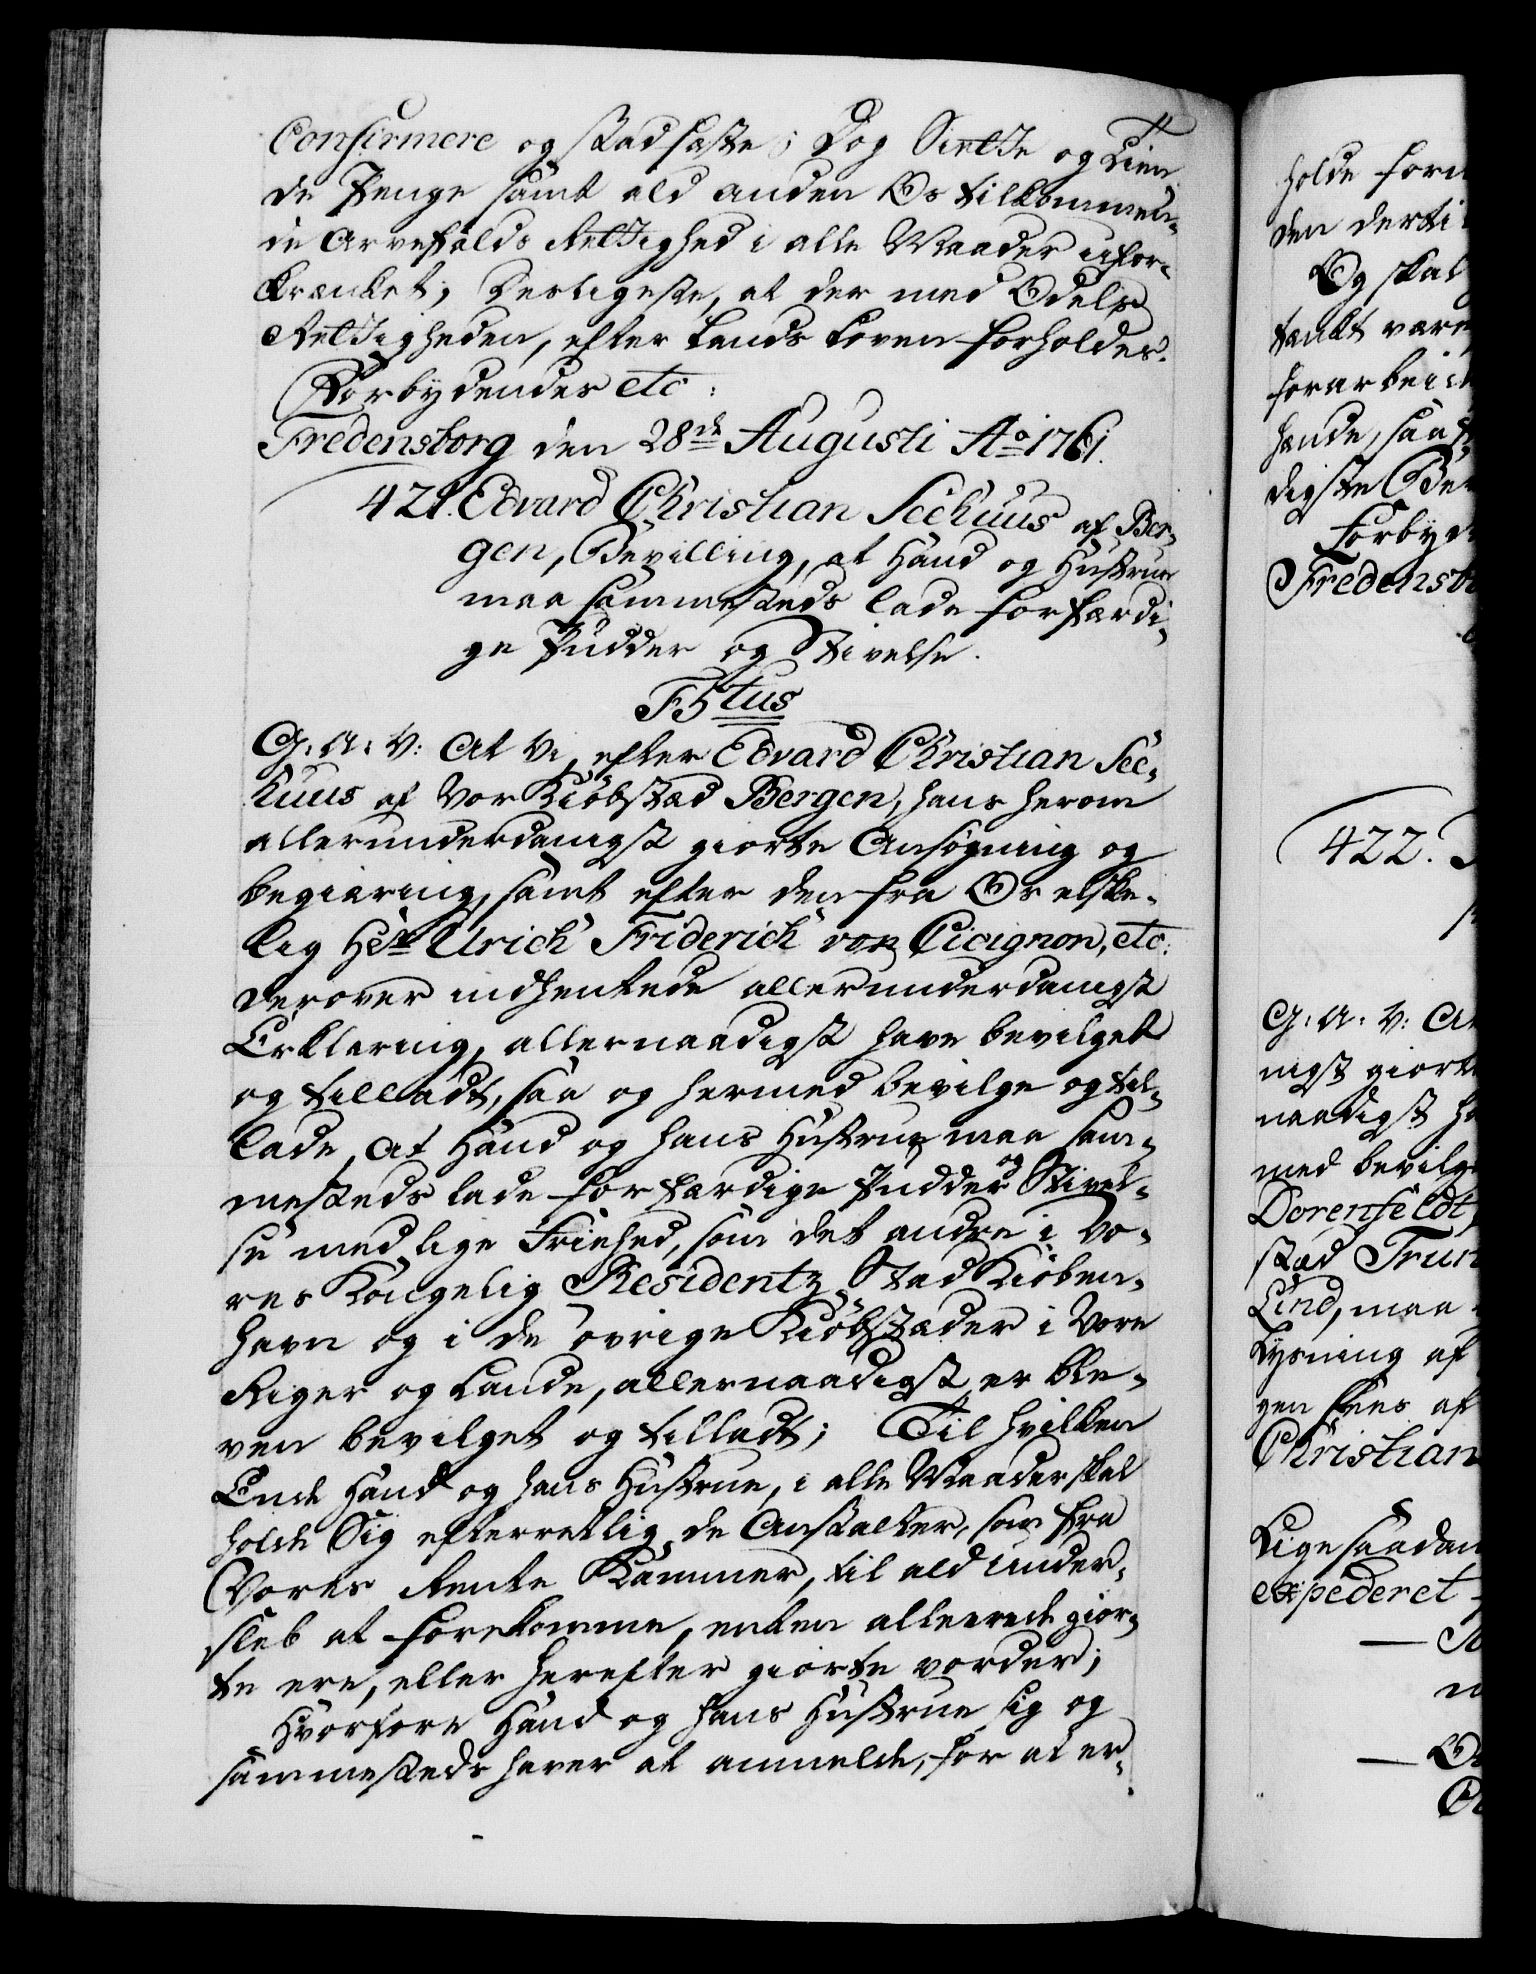 Confirmere og stadfæste; Dog Siette og Tien-
de Penge samt ald anden Os tilkommen-
de Arvefalds Rettighed i alle Maader ufor-
krænket; Desligeste, at der med Odels
Rettigheden, efter Lands Loven forholdes.
Forbydendes etc:
Fredensborg den 28de Augusti Ao 1761.
421. Edvard Christian Seehuus af Ber-
gen, Bevilling, at Hand og Hustrue
maa sammesteds lade forfærdi-
ge Pudder og Stivelse.
F5tus
G: A: V: At Vi, efter Edvard Christian See-
huus af Vor Kiöbstæd Bergen, hans herom
allerunderdanigst giorte Ansögning og
begiæring, samt efter den fra Os elske-
lig Hr Ulrich Friderich von Cicignon, etc:
derover indhentede allerunderdanigst
Erklæring, allernaadigst have bevilget
og tilladt, saa og hermed bevilge og til-
lade, at Hand og hans Hustrue maa sam-
mesteds lade forfærdige Pudder og Stivel-
se med lige Friehed, som det andre i Vo-
res Kongelig Residentz Stad Kiöben-
havn og i de övrige Kiöbstæder i Vore
Riger og Lande, allernaadigst er ble-
ven bevilget og tilladt; Til hvilken
Ende Hand og hans Hustrue, i alle Maader skal
holde Sig efterretlig de Anstalter, som fra
Vores Rente Kammer, til ald Under-
sleb at forekomme, enten allereede gior-
te ere, eller herefter giorte vorder;
Hvorfore Hand og hans Hustrue sig og
sammesteds haver at anmelde, for at er-
holde forn
den derti
Og skal
tænkt være
forarbeid
hænde, saa
digste Be
Forbyd
Fredensb
422.
G: A: V: A
nigst giort
naadigst ha
med bevilge
Dorenfeldt,
stæd Trun
Lind, maa
Lysning af
gen af
Christian
Lige saadan
expederet